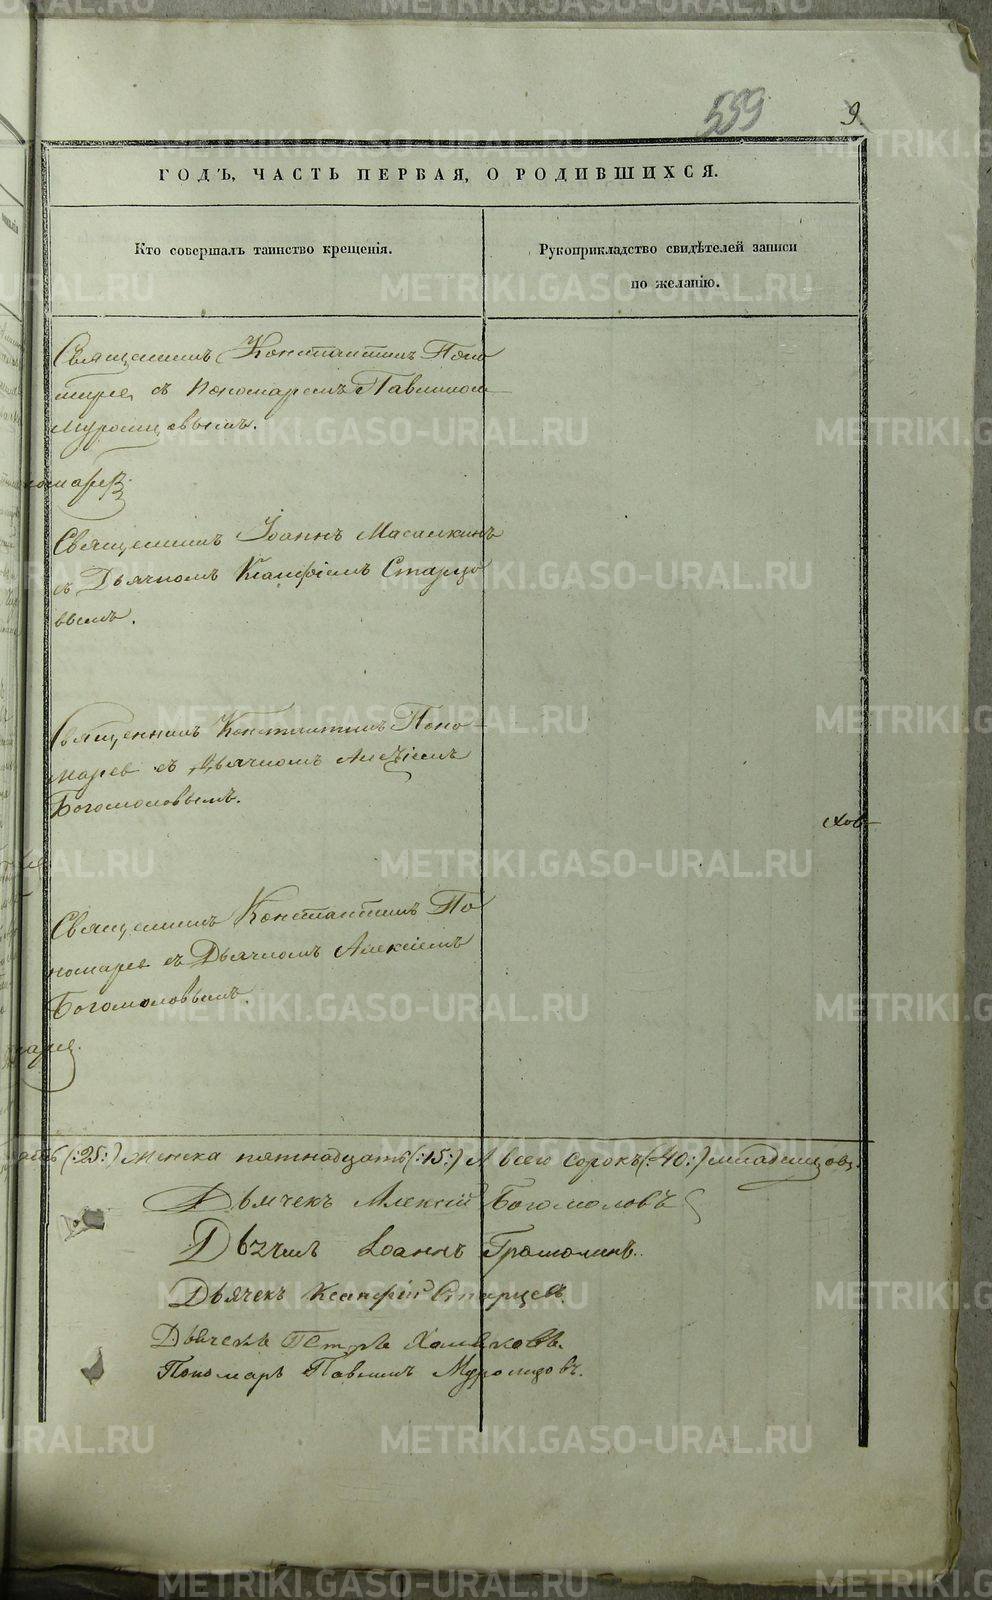 559
9.
ГОДЪ, ЧАСТЬ ПЕРВАЯ, О РОДИВШИХСЯ.
Кто совершалъ таинство крещенія.
Рукоприкладство свидѣтелей записи
по желанію.
Священникъ Константинъ Поно
марев съ Пономаремъ Павлиномъ
Муромцовымъ.
номарев
Священникъ Іоаннъ Масалкинъ
съ Дьячкомъ Ксанфіемъ Старцо
вымъ.
Священникъ Константинъ Поно
марев съ Дьячкомъ Алеѯіемъ
Богомоловымъ.
хов
Священникъ Константинъ По
номарев съ Дьячкомъ Алексіемъ
Богомоловымъ.
(:25:) женска пятнадцать (:15:) А всего сорокъ (:40:) младенцовъ.
Дьячекъ Алексій Богомоловъ
Дьячекъ Іоаннъ Грамолинъ.
Дьячекъ Ксанфій Старцевъ.
Дьячекъ Петръ Хомяковъ.
Пономарь Павлинъ Муромцовъ.
METRIKI.GASO-URAL.RU